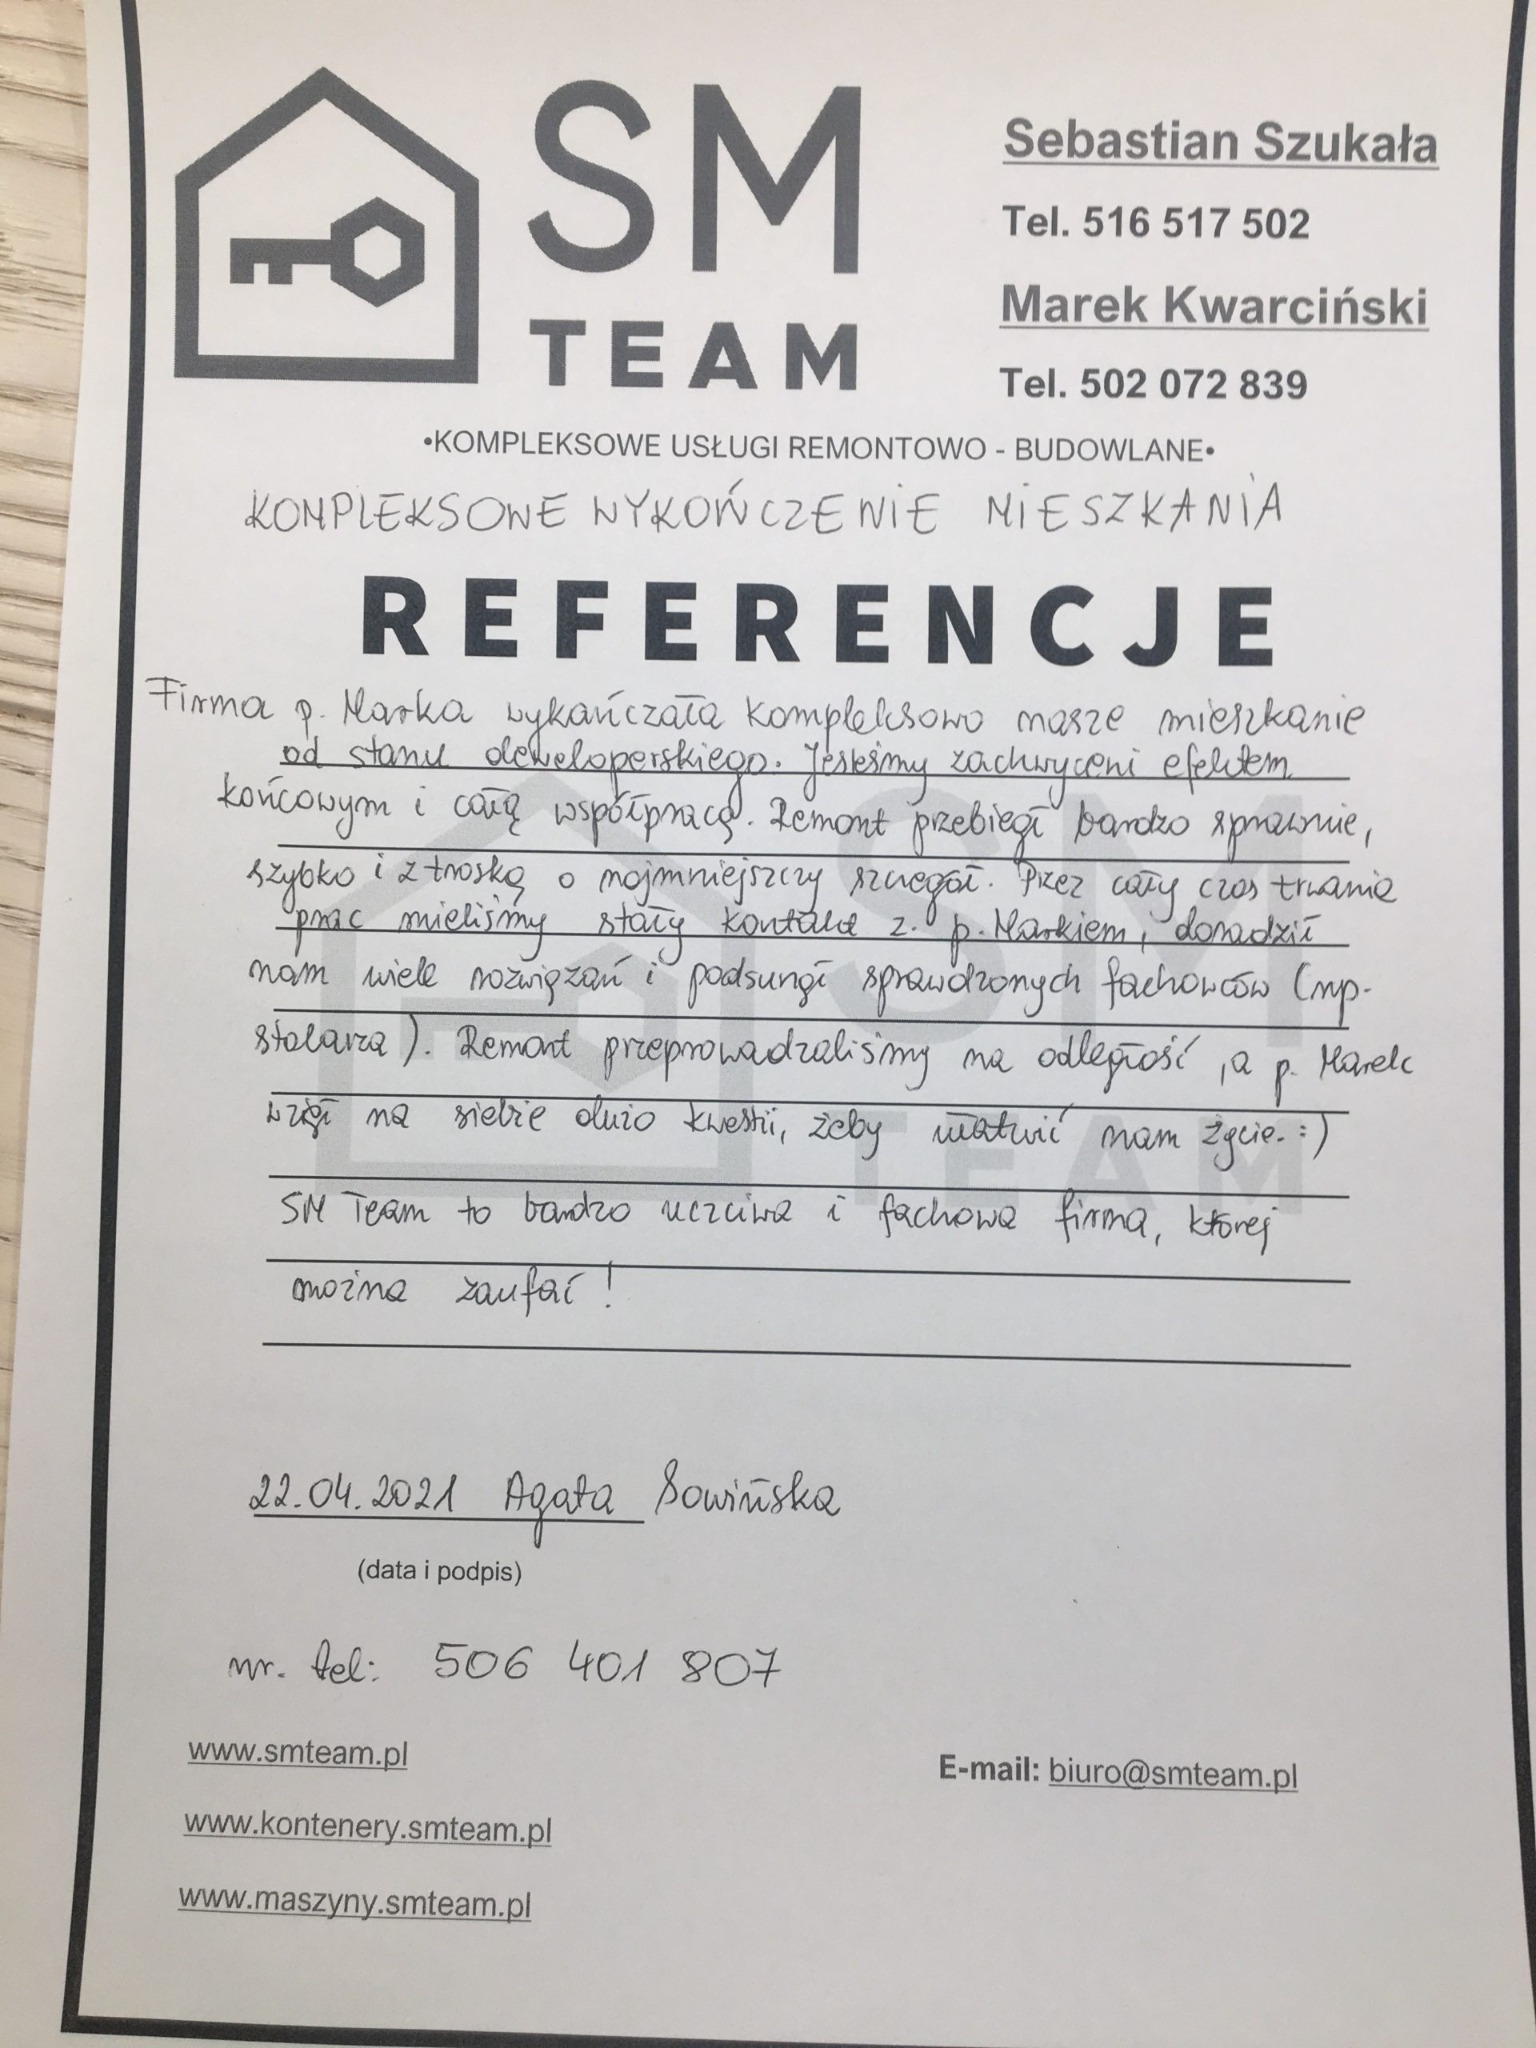 SM
TEAM
Sebastian Szukała
Tel. 516 517 502
Marek Kwarciński
Tel. 502 072 839
•KOMPLEKSOWE USŁUGI REMONTOWO - BUDOWLANE•
KOMPLEKSOWE WYKOŃCZENIE MIESZKANIA
REFERENCJE
Firma p. Marka wykańczała kompleksowo nasze mieszkanie
od stanu deweloperskiego. Jesteśmy zachwyceni efektem
końcowym i całą współpracą. Remont przebiegł bardzo sprawnie,
szybko i z troską o najmniejszy szczegół. Przez cały czas trwania
prac mieliśmy stały kontakt z. p. Markiem, doradził
nam wiele rozwiązań i podsunął sprawdzonych fachowców (np.
stolarza). Remont przeprowadzaliśmy na odległość, a p. Marek
wziął na siebie dużo kwestii, żeby ułatwić nam życie. :)
SM Team to bardzo uczciwa i fachowa firma, której
można zaufać!
SM
TEAM
22.04.2021 Agata Sowińska
(data i podpis)
nr. tel: 506 401 807
www.smteam.pl
E-mail: biuro@smteam.pl
www.kontenery.smteam.pl
www.maszyny.smteam.pl